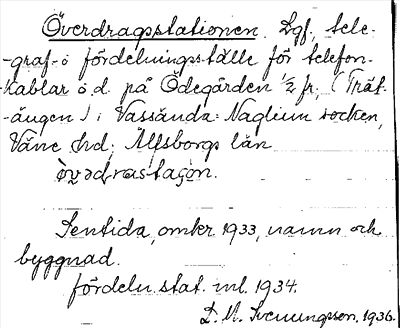 Överdragsstationen. Lgf, tele-
-graf- o fördelningsställe för telefon-
-kablar o.d. på Ödegården 1/2 fr, (Träf-
-ängen) i Vassända-Naglum socken,
Väne hd; Älfsborgs län
övədrastaʃon.
Sentida, omkr 1933, namn och
byggnad.
fördeln. stat. inl. 1934.
D. A. Svenungsson. 1936.